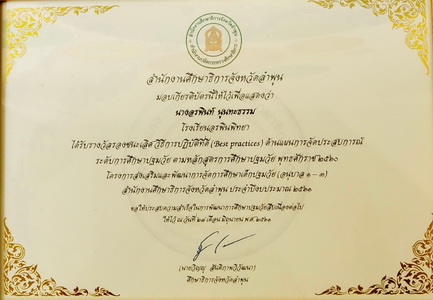 สำนักงานศึกษาธิการจังหวัดลำพูน
มอบเกียรติบัตรนี้ให้ไว้เพื่อแสดงว่า
นางอรพินท์ นุนทะธรรม
โรงเรียนอรพินพิทยา
ได้รับรางวัลรองชนะเลิศ วิธีการปฏิบัติที่ดี (Best practices) ด้านแผนการจัดประสบการณ์
ระดับการศึกษาปฐมวัย ตามหลักสูตรการศึกษาปฐมวัย พุทธศักราช ๒๕๖๐
โครงการส่งเสริมและพัฒนาการจัดการศึกษาเด็กปฐมวัย (อนุบาล ๑ - ๓)
สำนักงานศึกษาธิการจังหวัดลำพูน ประจำปีงบประมาณ ๒๕๖๑
ขอให้ประสบความสำเร็จในการพัฒนาการศึกษาปฐมวัยสืบเนื่องต่อไป
ให้ไว้ ณ วันที่ ๒๘ เดือน มิถุนายน พ.ศ. ๒๕๖๑
(นายวิญญู สันติภาพวิวัฒนา)
ศึกษาธิการจังหวัดลำพูน